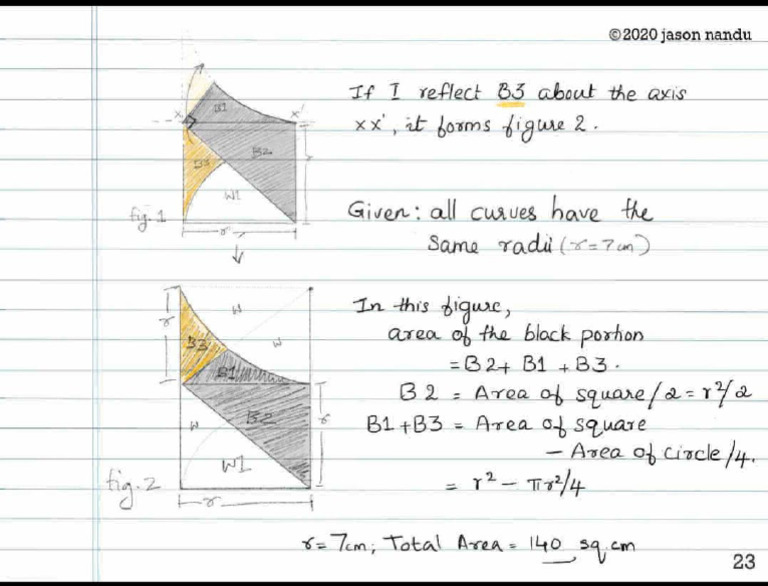 ©2020 jason nandu
If I reflect B3 about the axis
xx', it forms figure 2.
x
x'
B1
B2
B3
W1
fig. 1
r
Given: all curves have the
same radii (r=7cm)
In this figure,
area of the black portion
= B2 + B1 + B3.
B2 = Area of square/2 = r²/2
B1+B3 = Area of square
- Area of circle/4.
= r² - πr²/4
r
w
w
B3
B1
B2
r
w
W1
fig. 2
r
r=7cm; Total Area = 140 sq.cm
23